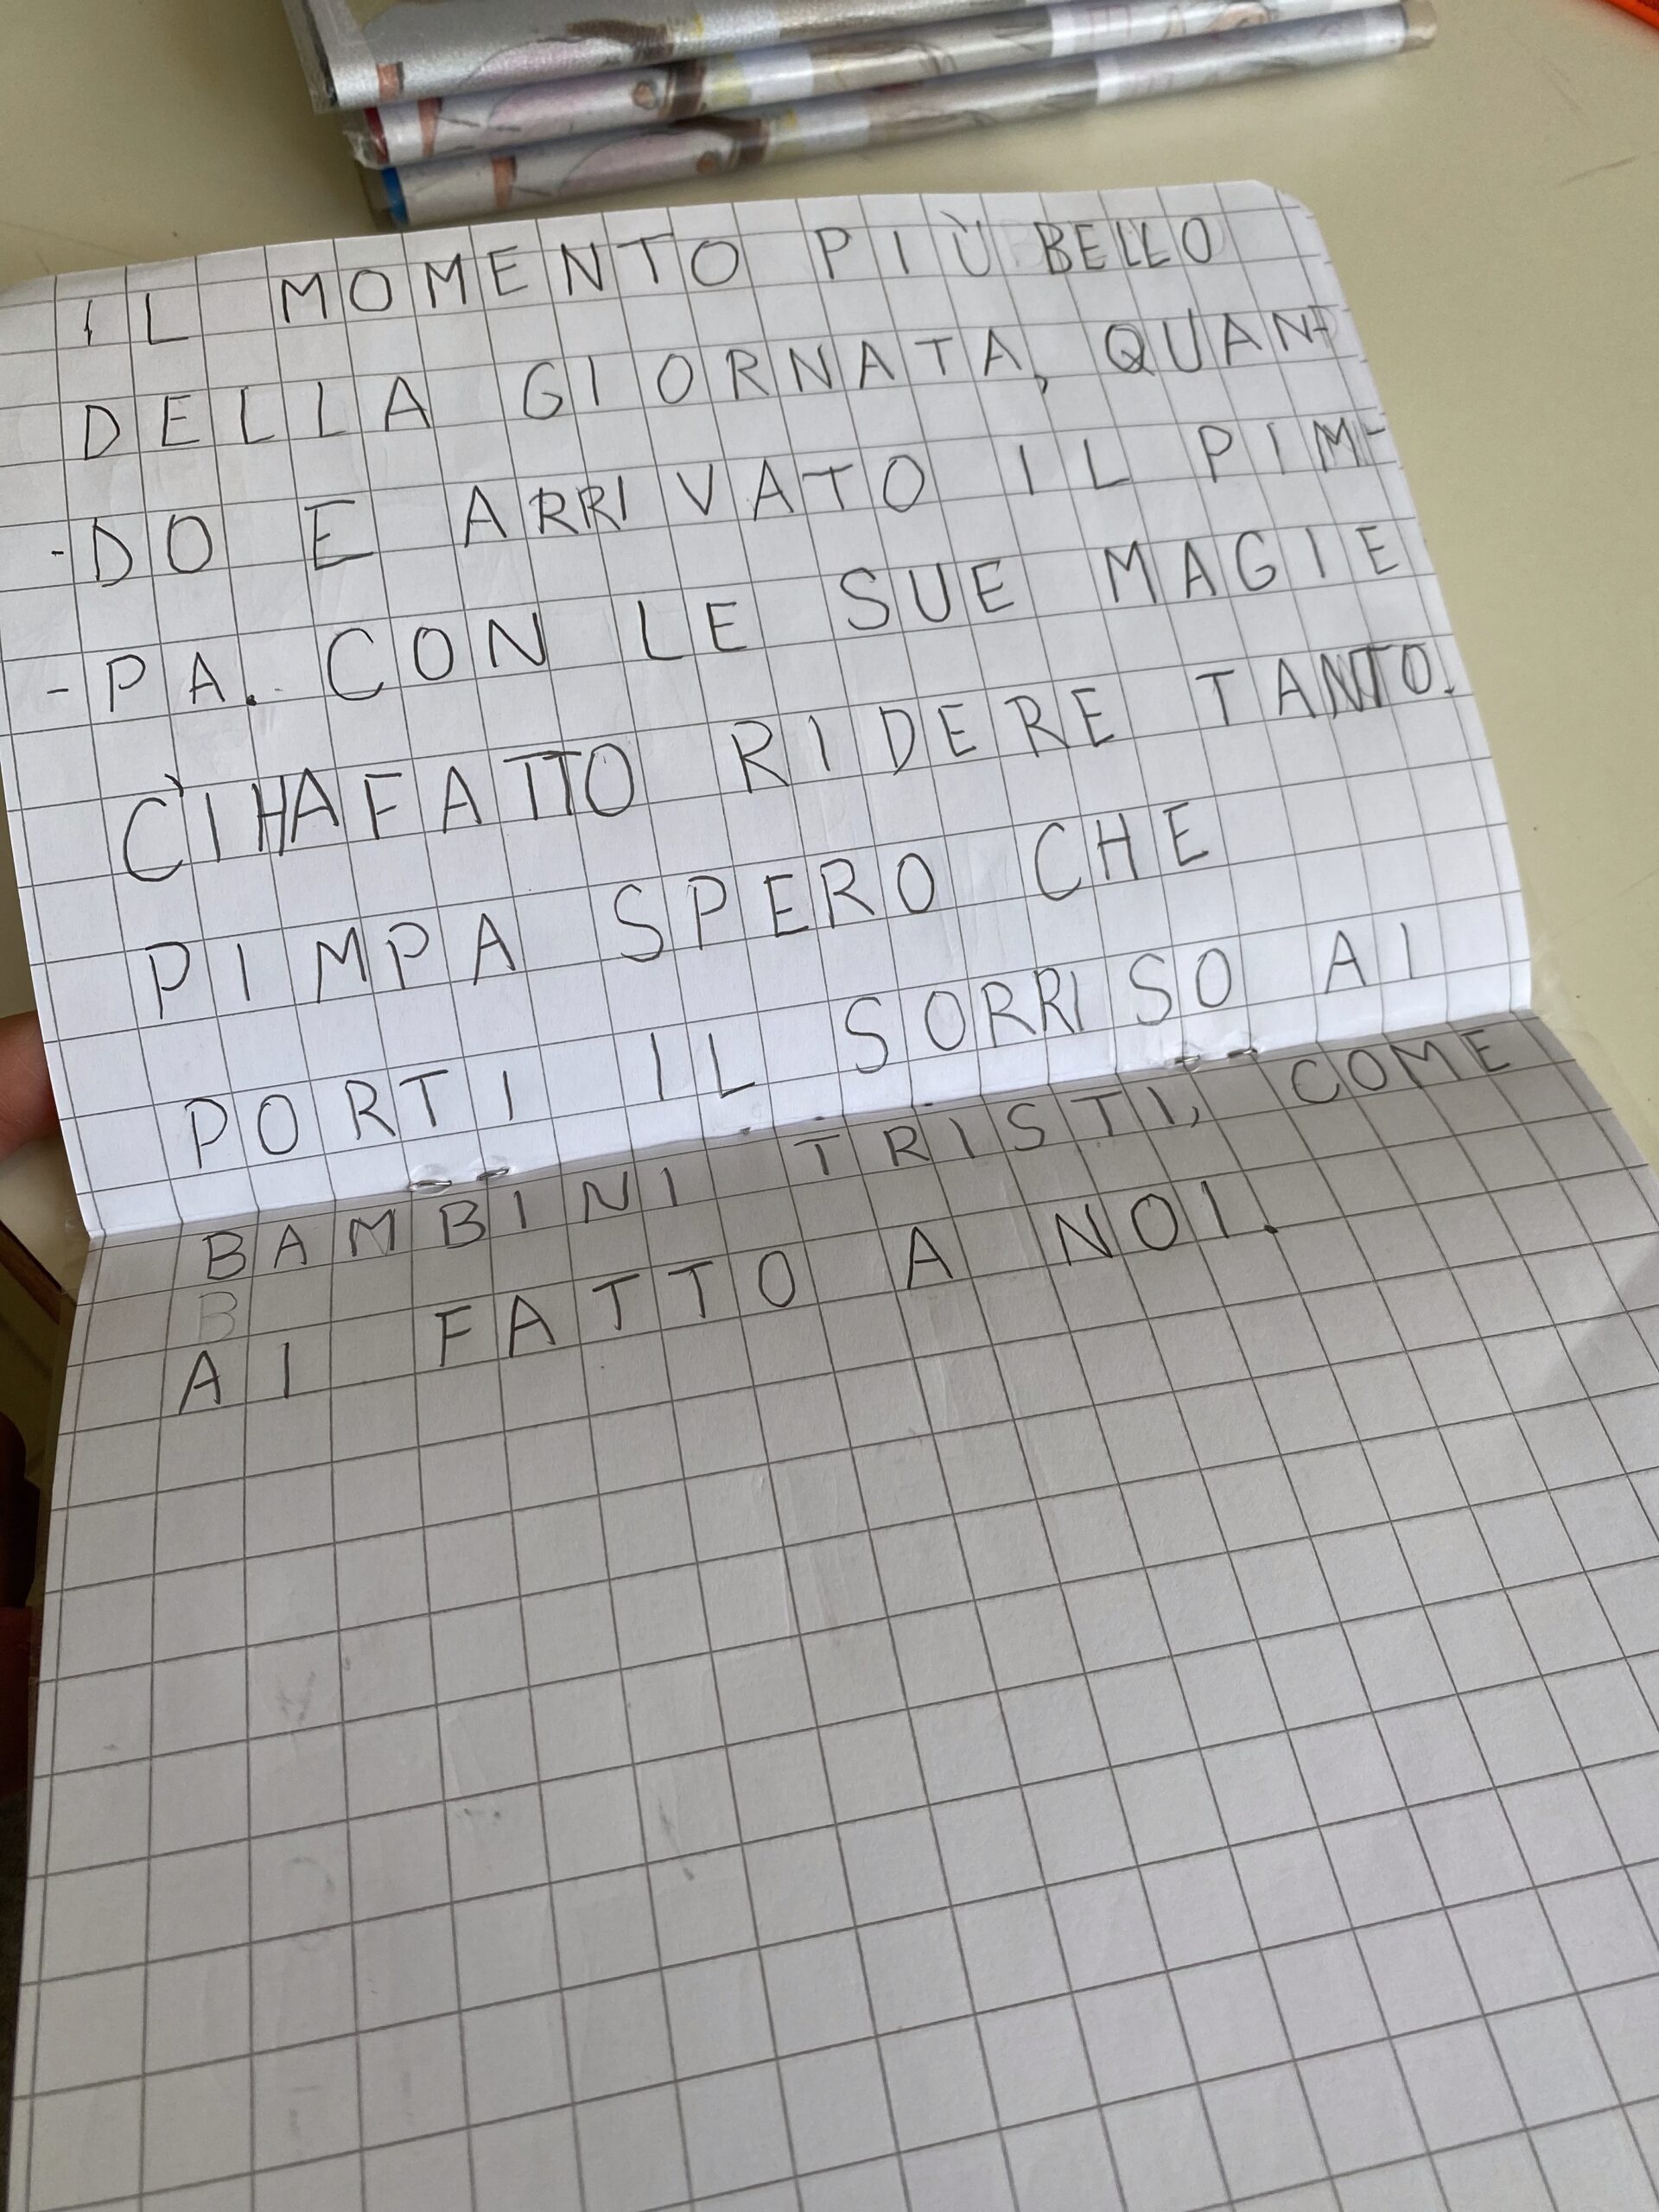 IL MOMENTO PIÙ BELLO
DELLA GIORNATA, QUAN-
-DO E ARRIVATO IL PIM-
-PA. CON LE SUE MAGIE
C'I HA FATTO RIDERE TANTO.
PIMPA SPERO CHE
PORTI IL SORRISO AI
BAMBINI TRISTI, COME
AI FATTO A NOI.